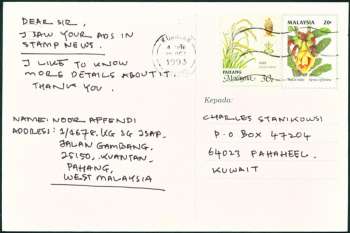 DEAR SIR,
I SAW YOUR ADS IN
STAMP NEWS.
I LIKE TO KNOW
MORE DETAILS ABOUT IT.
THANK YOU.
NAME: NOOR AFFENDI
ADDRESS: 2/2678, KG SG ISAP,
JALAN GAMBANG,
25150, KUANTAN,
PAHANG,
WEST MALAYSIA
1993
PAHANG
Malaysia 30¢
MALAYSIA 20¢
Kepada:
CHARLES STANIKOWSI
P-O BOX 47204
64023 FAHAHEEL
KUWAIT